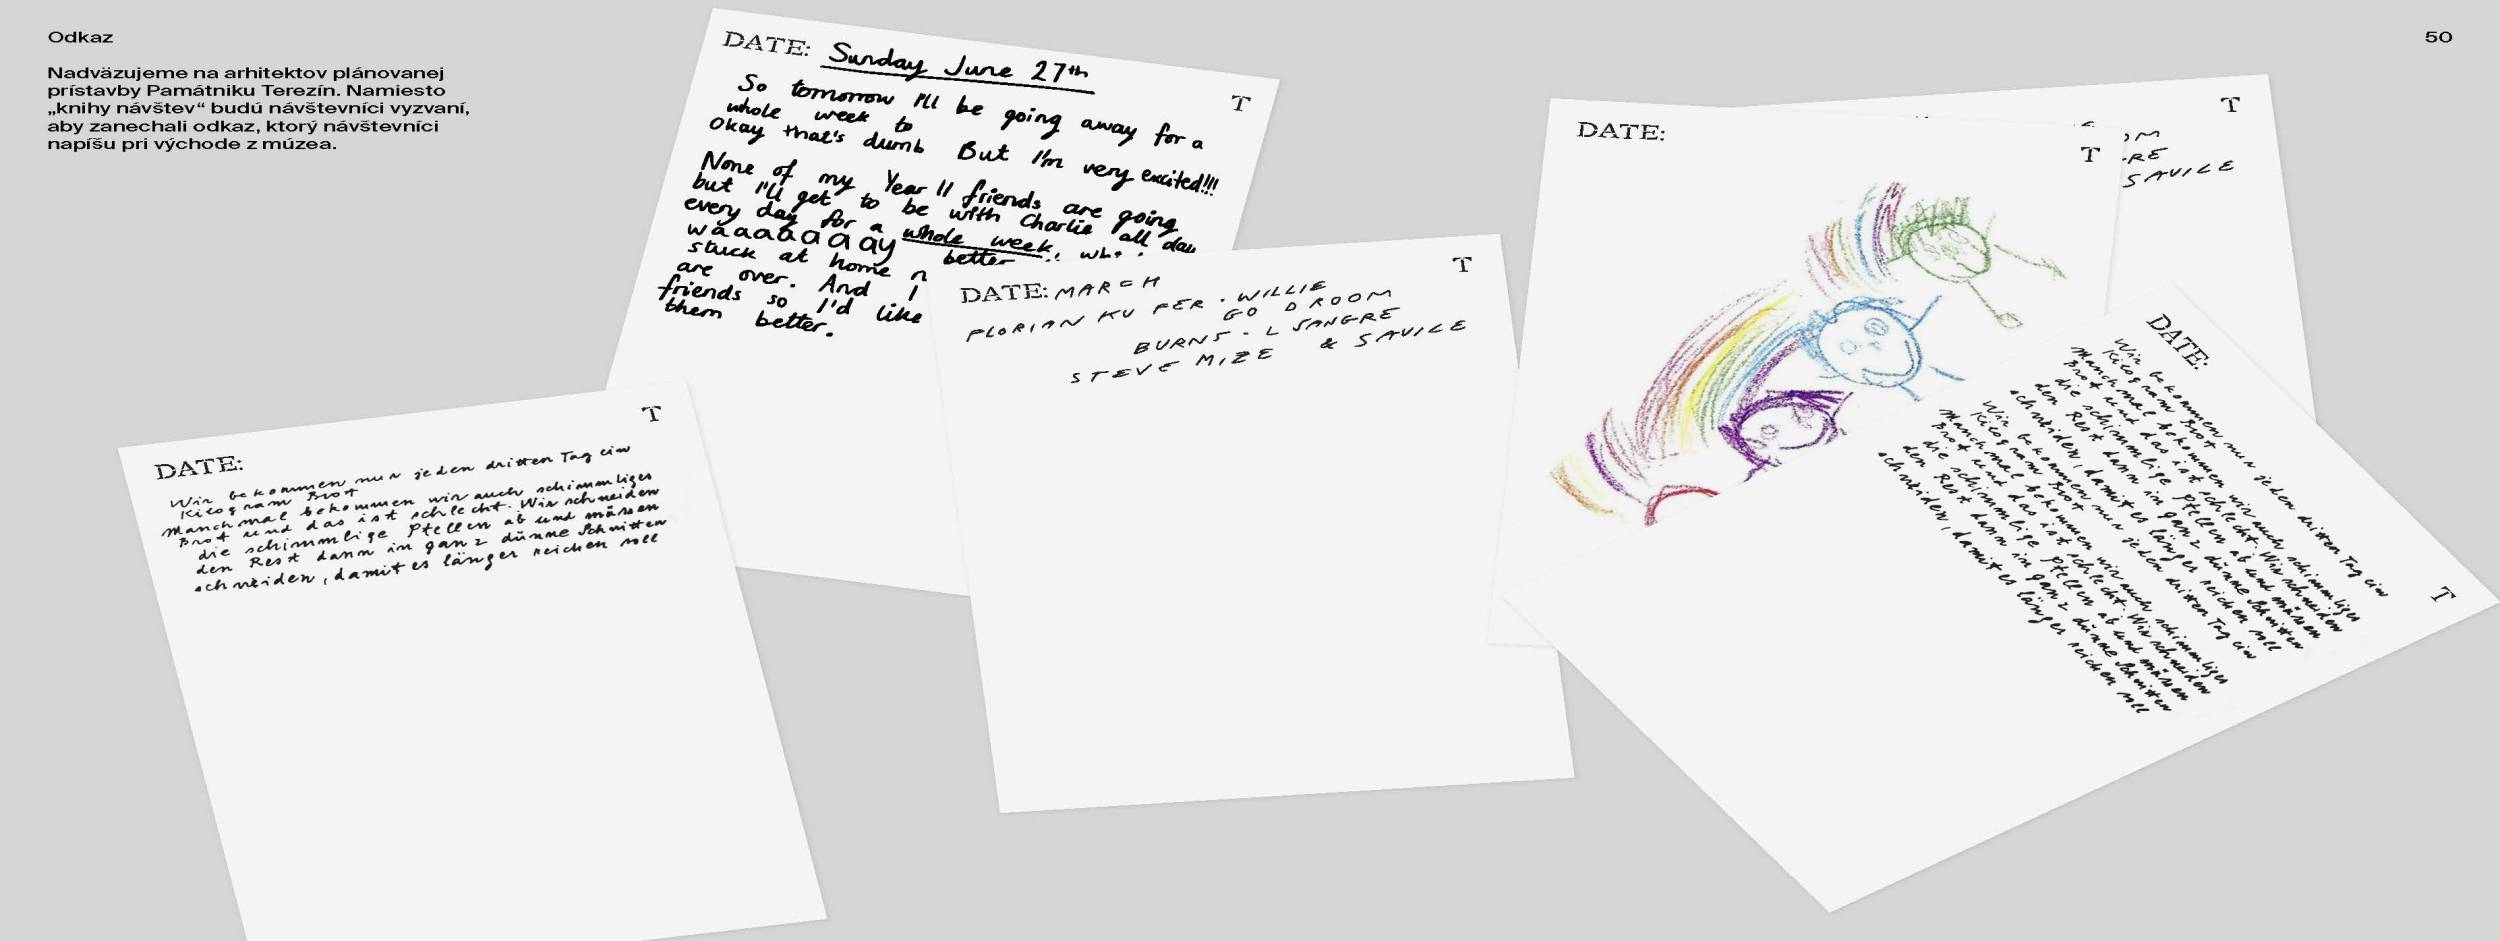 Odkaz
50
Nadväzujeme na arhitektov plánovanej
prístavby Památniku Terezín. Namiesto
„knihy návštev“ budú návštevníci vyzvaní,
aby zanechali odkaz, ktorý návštevníci
napíšu pri východe z múzea.
DATE: Sunday June 27th
T
So tomorrow I'll be going away for a
whole week to
Okay that's dumb But I'm very excited!!!
None of my Year 11 friends are going
but I'll get to be with Charlie all day
every day for a whole week, whi
waaaaaaay better
stuck at home n
are over. And I
friends so I'd like
them better.
T
DATE: MARCH
FLORIAN KU FER · WILLIE
GO D ROOM
BURNS - L SANGRE
STEVE MIZE & SAVILE
T
DATE:
Wir bekommen nur jeden dritten Tag ein
Kilogram Brot
Manchmal bekommen wir auch schimmliges
Brot und das ist schlecht. Wir schneiden
die schimmlige Stellen ab und müssen
den Rest dann in ganz dünne Schnitten
schneiden, damit es länger reichen soll
DATE:
T
T
OM
GRE
SAVILE
DATE:
T
Wir bekommen nur jeden dritten Tag ein
Kilogram Brot
Manchmal bekommen wir auch schimmliges
Brot und das ist schlecht. Wir schneiden
die schimmlige Stellen ab und müssen
den Rest dann in ganz dünne Schnitten
schneiden, damit es länger reichen soll
Wir bekommen nur jeden dritten Tag ein
Kilogram Brot
Manchmal bekommen wir auch schimmliges
Brot und das ist schlecht. Wir schneiden
die schimmlige Stellen ab und müssen
den Rest dann in ganz dünne Schnitten
schneiden, damit es länger reichen soll